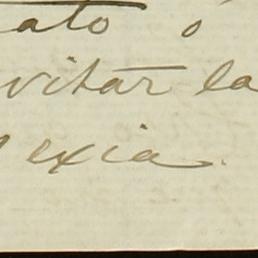 ato ó
vitar la
exia.